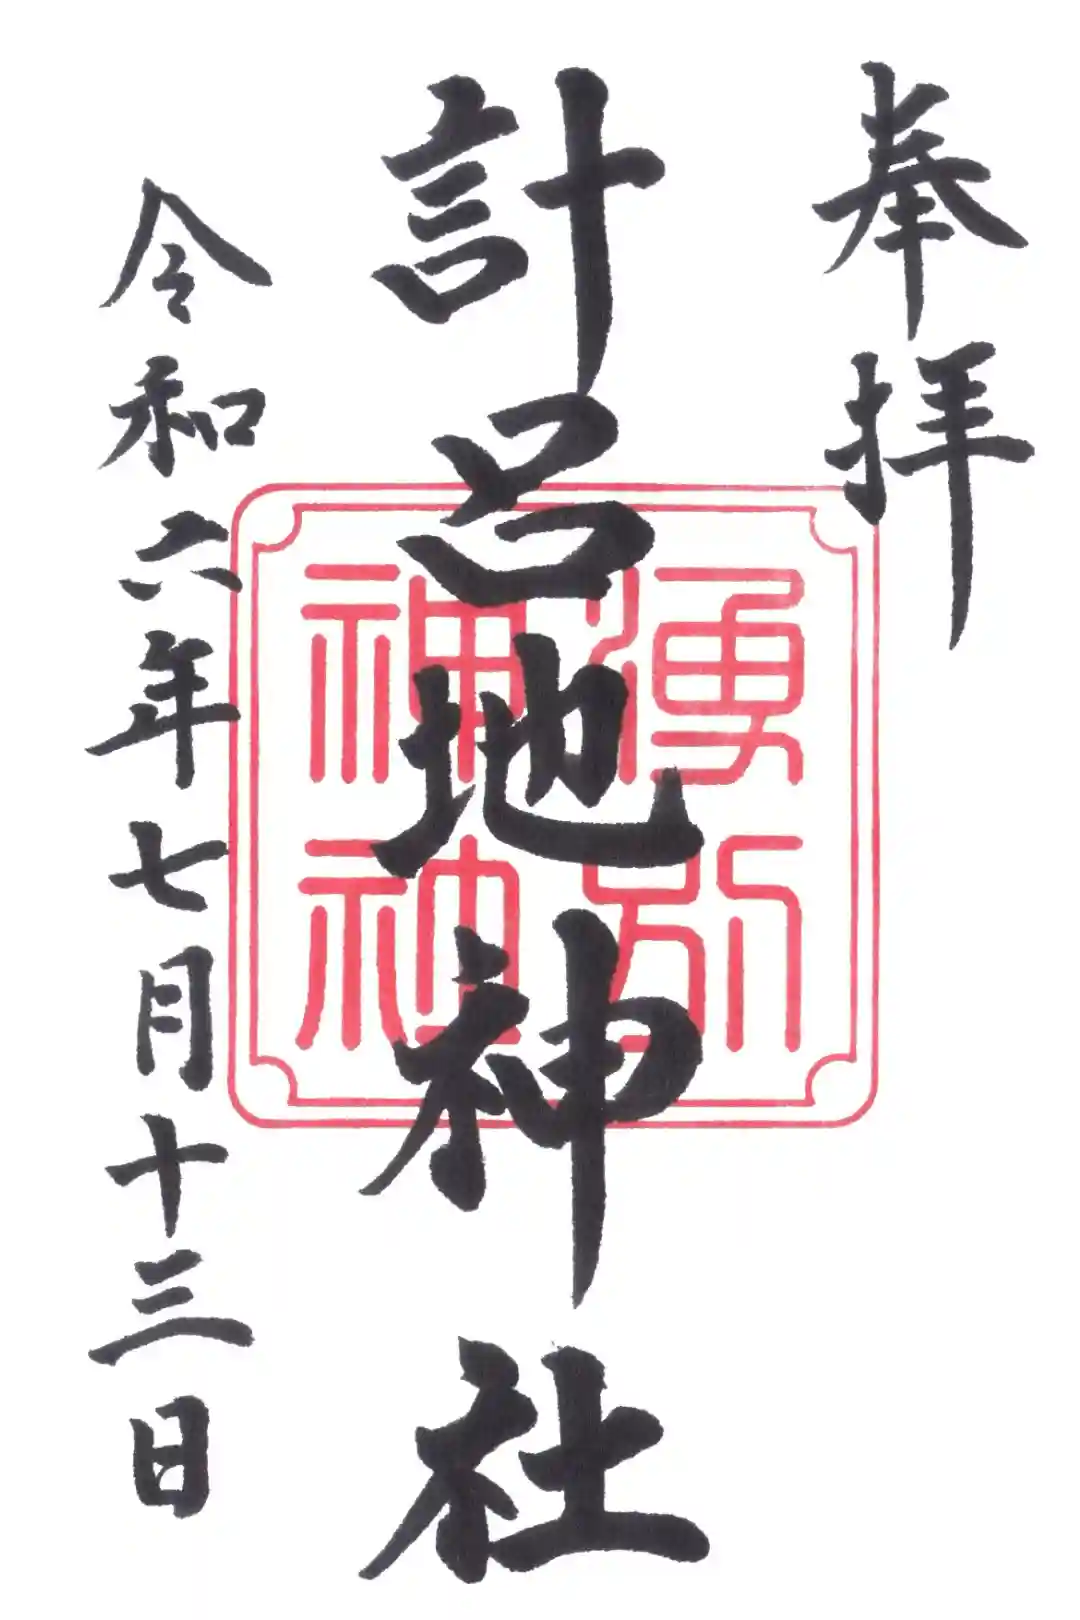 奉拝
計呂地神社
湧別神社
令和六年七月十三日